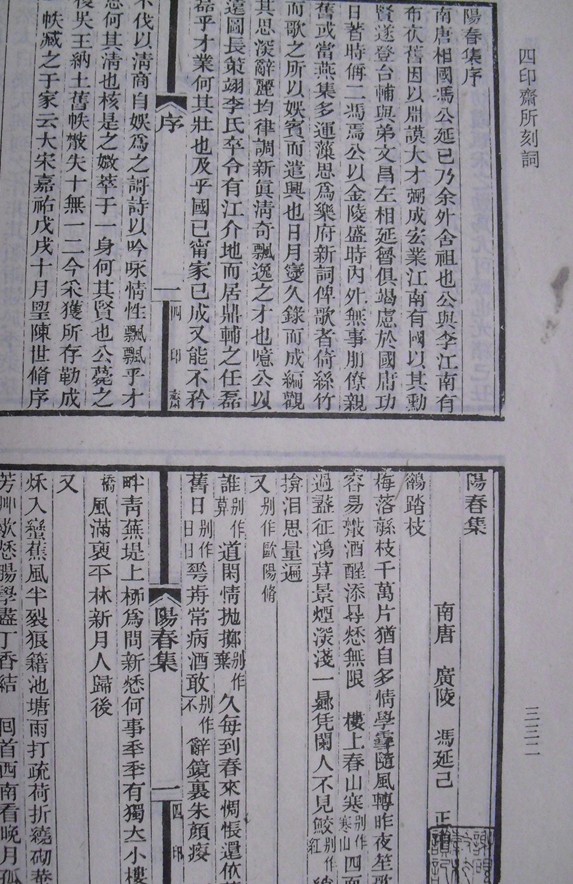 四印齋所刻詞
三三二
陽春集序
南唐相國馮公延巳乃余外舍祖也公與李江南有
布衣舊因以淵謨大才弼成宏業江南有國以其勳
賢遂登台輔與弟文昌左相延魯俱竭慮於國庸功
日著時稱二馮焉公以金陵盛時內外無事朋僚親
舊或當燕集多運藻思為樂府新詞俾歌者倚絲竹
而歌之所以娛賓而遣興也日月寖久錄而成編觀
其思深辭麗均律調新真清奇飄逸之才也噫公以
遠圖長策翊李氏卒令有江介地而居鼎輔之任磊
磊乎才業何其壯也及乎國已甯家已成又能不矜
序
一
四印齋
不伐以清商自娛為之謌詩以吟咏情性飄飄乎才
思何其清也核是之媺萃于一身何其賢也公薨之
後吳王納土舊帙散失十無一二今采獲所存勒成
一帙藏之于家云大宋嘉祐戊戌十月望陳世脩序
陽春集
南唐 廣陵 馮延己 正
鵲踏枝
梅落緐枝千萬片猶自多情學雪隨風轉昨夜笙歌
容易散酒醒添得愁無限 樓上春山寒別作寒山四面
過盡征鴻莫景煙深淺一晌凭闌人不見鮫別作紅
揜淚思量遍
又別作歐陽脩
誰別作莫道閑情抛擲別作棄久每到春來惆悵還依
舊日別作日日蕚前常病酒敢別作不辭鏡裏朱顏瘦
陽春集
一
四印
畔青蕪堤上栁為問新愁何事秊秊有獨立小樓
橋風滿褎平林新月人歸後
又
秌入蠻蕉風半裂狼籍池塘雨打疏荷折繞砌
芳艸歇愁腸學盡丁香結 囘首西南看晚月孤